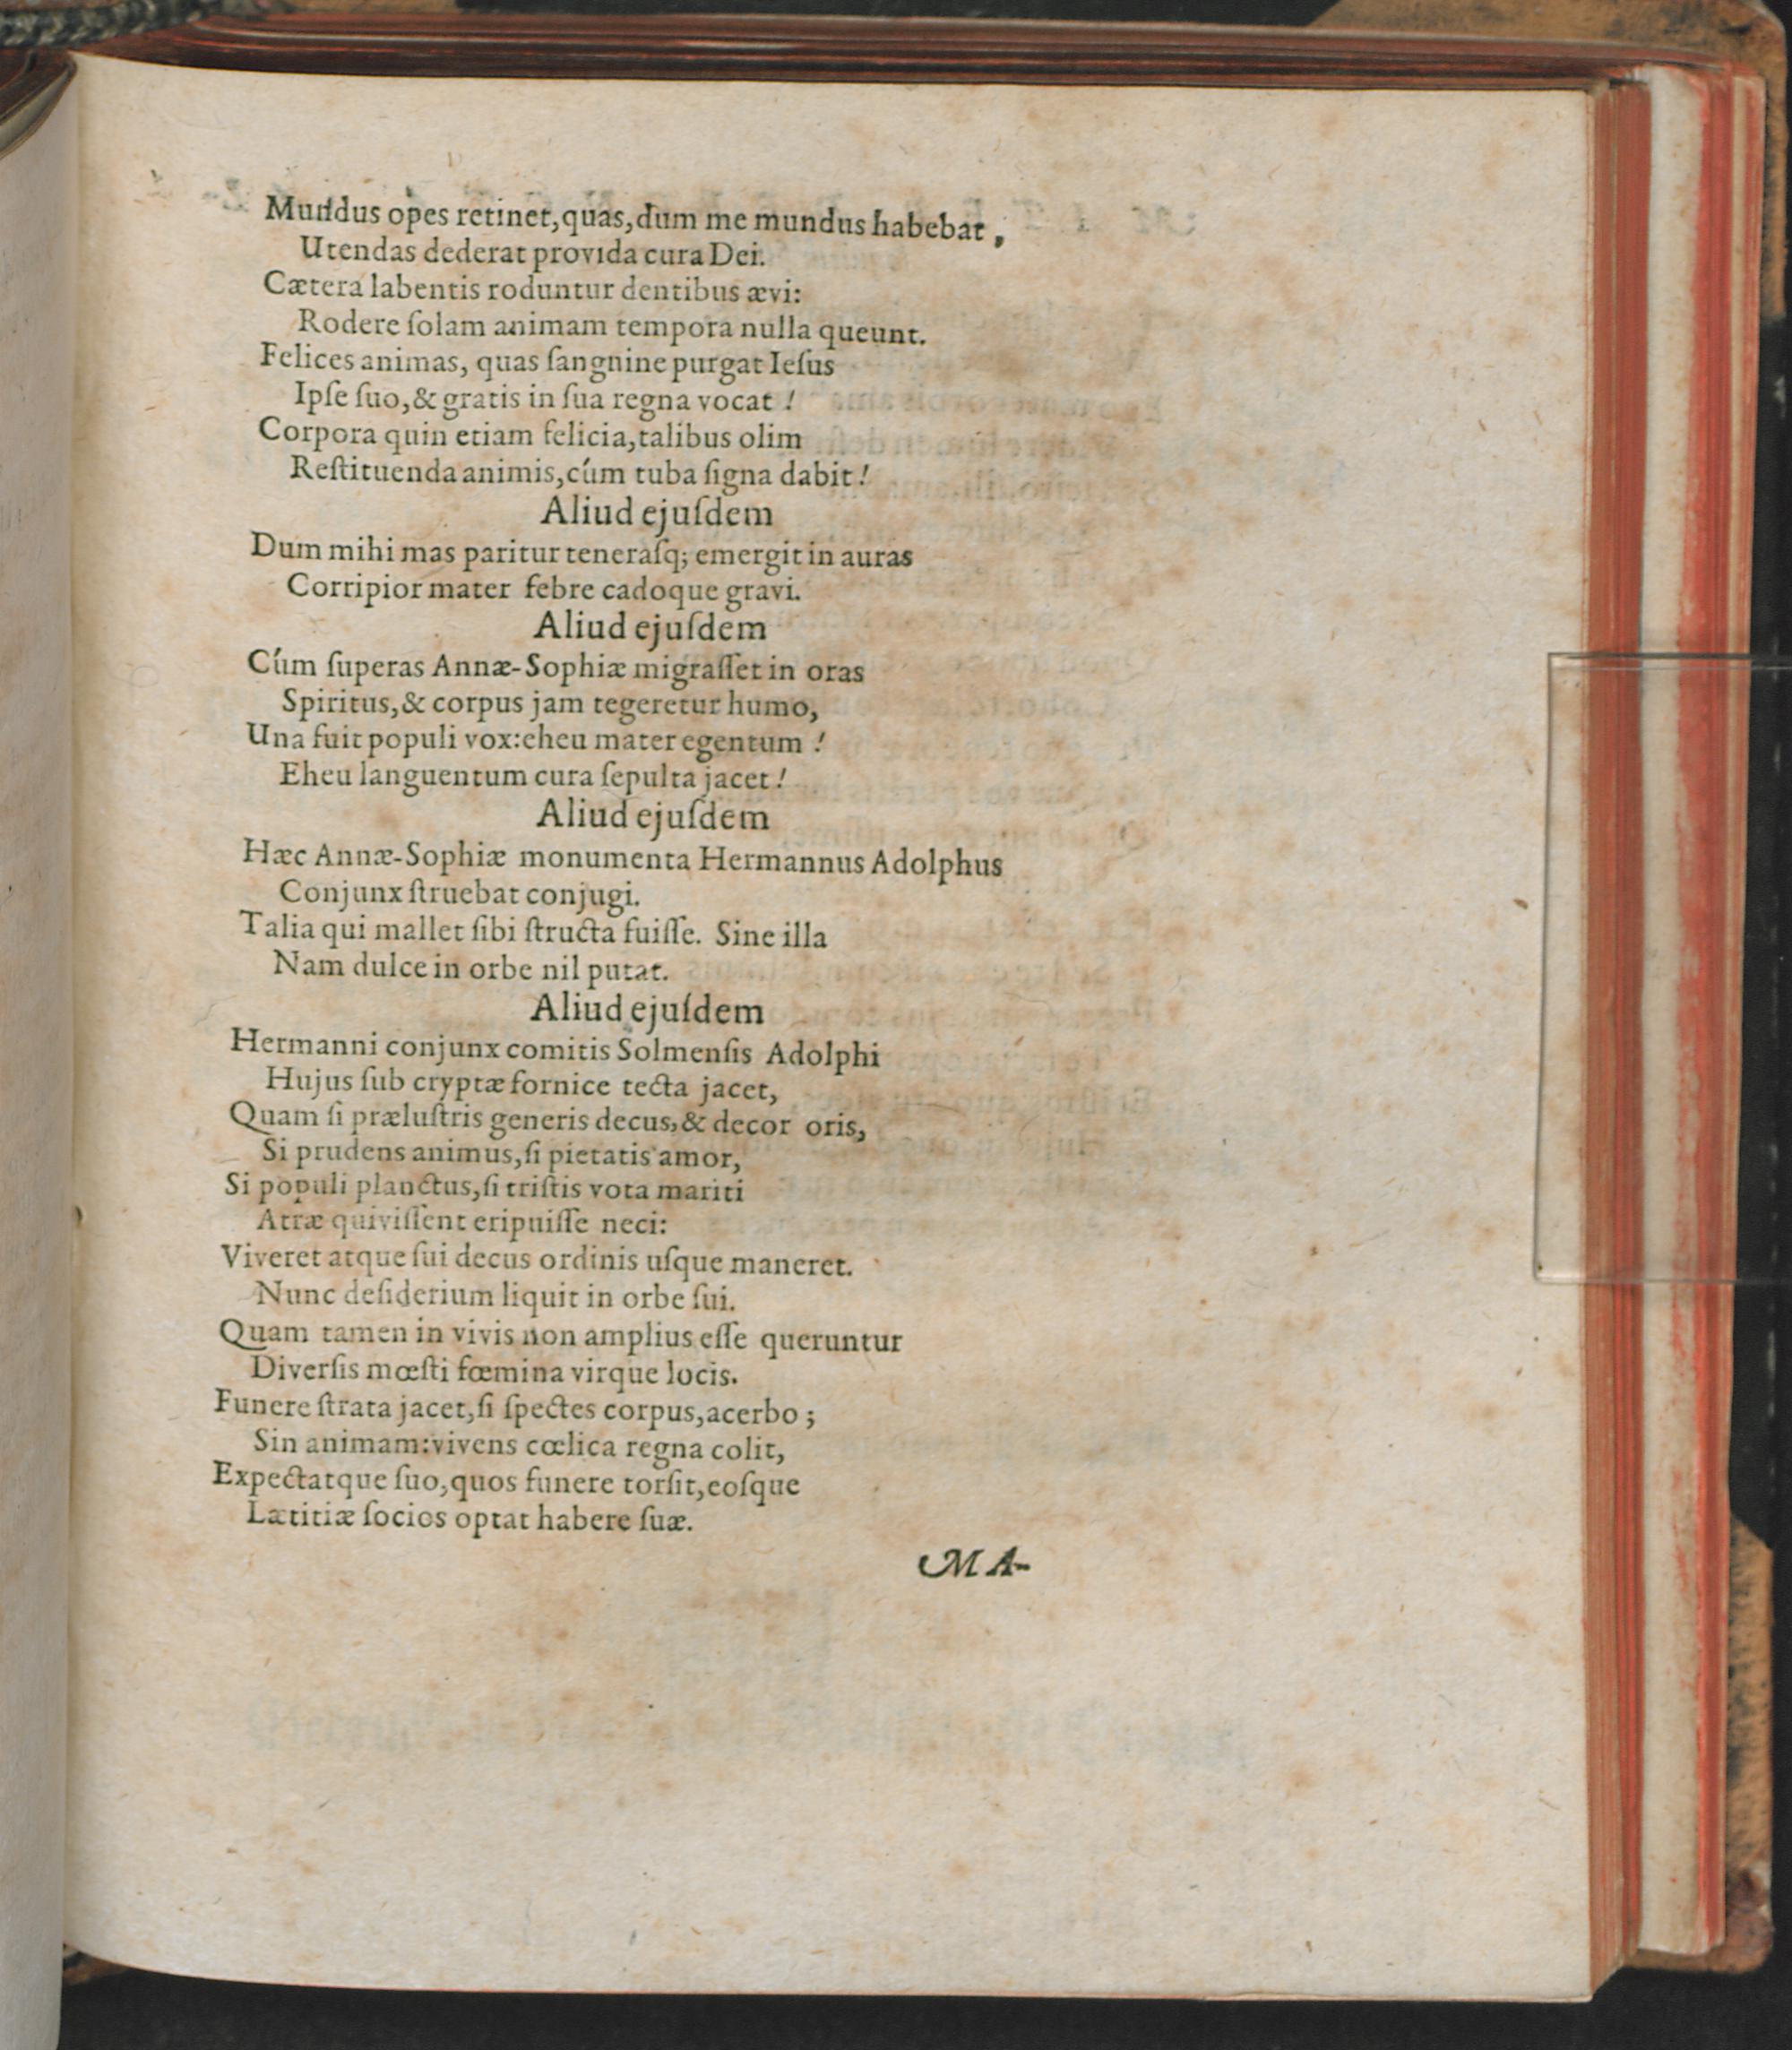 Mundus opes retinet, quas, dum me mundus habebat,
Utendas dederat provida cura Dei.
Cætera labentis roduntur dentibus ævi:
Rodere ſolam animam tempora nulla queunt.
Felices animas, quas ſangnine purgat Ieſus
Ipſe ſuo, & gratis in ſua regna vocat!
Corpora quin etiam felicia, talibus olim
Reſtituenda animis, cúm tuba ſigna dabit!
Aliud ejuſdem
Dum mihi mas paritur teneraſq; emergit in auras
Corripior mater febre cadoque gravi.
Aliud ejuſdem
Cúm ſuperas Annæ-Sophiæ migraſſet in oras
Spiritus, & corpus jam tegeretur humo,
Una fuit populi vox: eheu mater egentum!
Eheu languentum cura ſepulta jacet!
Aliud ejuſdem
Hæc Annæ-Sophiæ monumenta Hermannus Adolphus
Conjunx ſtruebat conjugi.
Talia qui mallet ſibi ſtructa fuiſſe. Sine illa
Nam dulce in orbe nil putat.
Aliud ejuſdem
Hermanni conjunx comitis Solmenſis Adolphi
Hujus ſub cryptæ fornice tecta jacet,
Quam ſi præluſtris generis decus, & decor oris,
Si prudens animus, ſi pietatis amor,
Si populi planctus, ſi triſtis vota mariti
Atræ quiviſſent eripuiſſe neci:
Viveret atque ſui decus ordinis uſque maneret.
Nunc deſiderium liquit in orbe ſui.
Quam tamen in vivis non amplius eſſe queruntur
Diverſis mœſti fœmina virque locis.
Funere ſtrata jacet, ſi ſpectes corpus, acerbo;
Sin animam: vivens cœlica regna colit,
Expectatque ſuo, quos funere torſit, eoſque
Lætitiæ ſocios optat habere ſuæ.
MA-